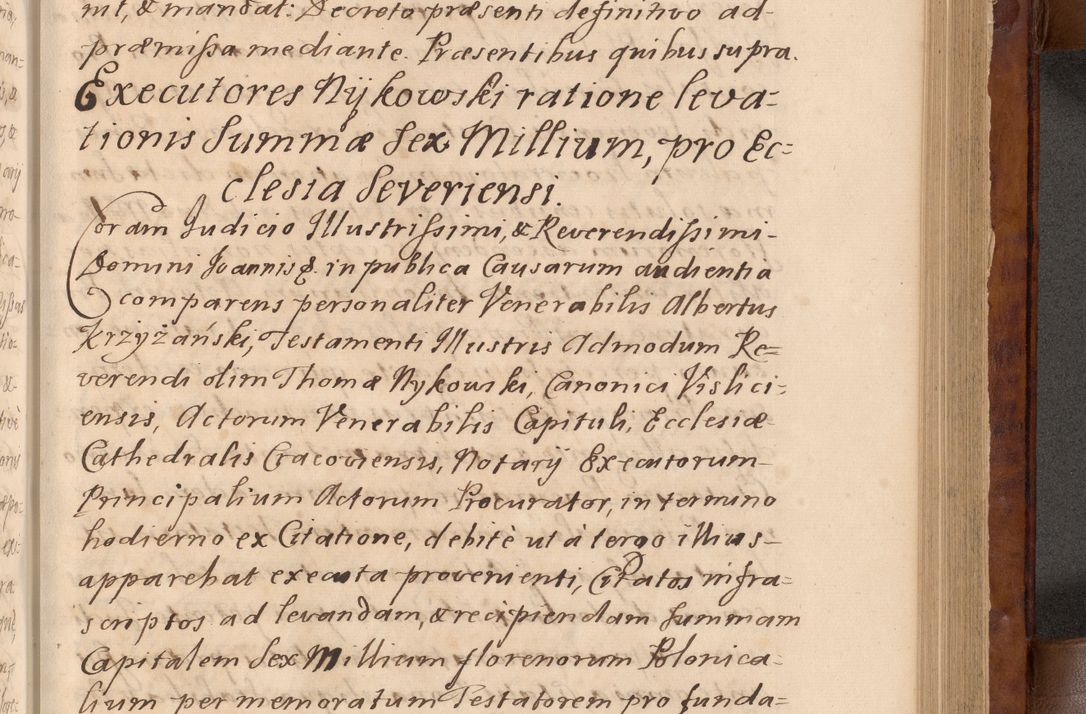 nit, & mandat: Decreto præsenti definitivo ad-
præmissa mediante. Præsentibus quibus supra.
Executores Nÿkowski ratione leva=
tionis Summæ Sex Millium, pro Ec=
clesia Severiensi.
Coram Judicio Illustrissimi, & Reverendissimi-
Domini Joannis &. in publica Causarum audientia
comparens personaliter Venerabilis Albertus
Krzyżański, Testamenti Illustris Admodum Re=
verendi olim Thomæ Nykowski, Canonici Vislici=
ensis, Actorum Venerabilis Capituli, Ecclesiæ
Cathedralis Cracoviensis, Notarij Executorum
Principalium Actorum Procurator, in termino
hodierno ex Citatione, debitè ut à tergo illius-
apparebat executa provenienti, Citatos infra=
scriptos ad levandam, & recipiendam Summam
Capitalem Sex Millium florenorum Polonica=
lium per memoratum Testatorem pro funda=